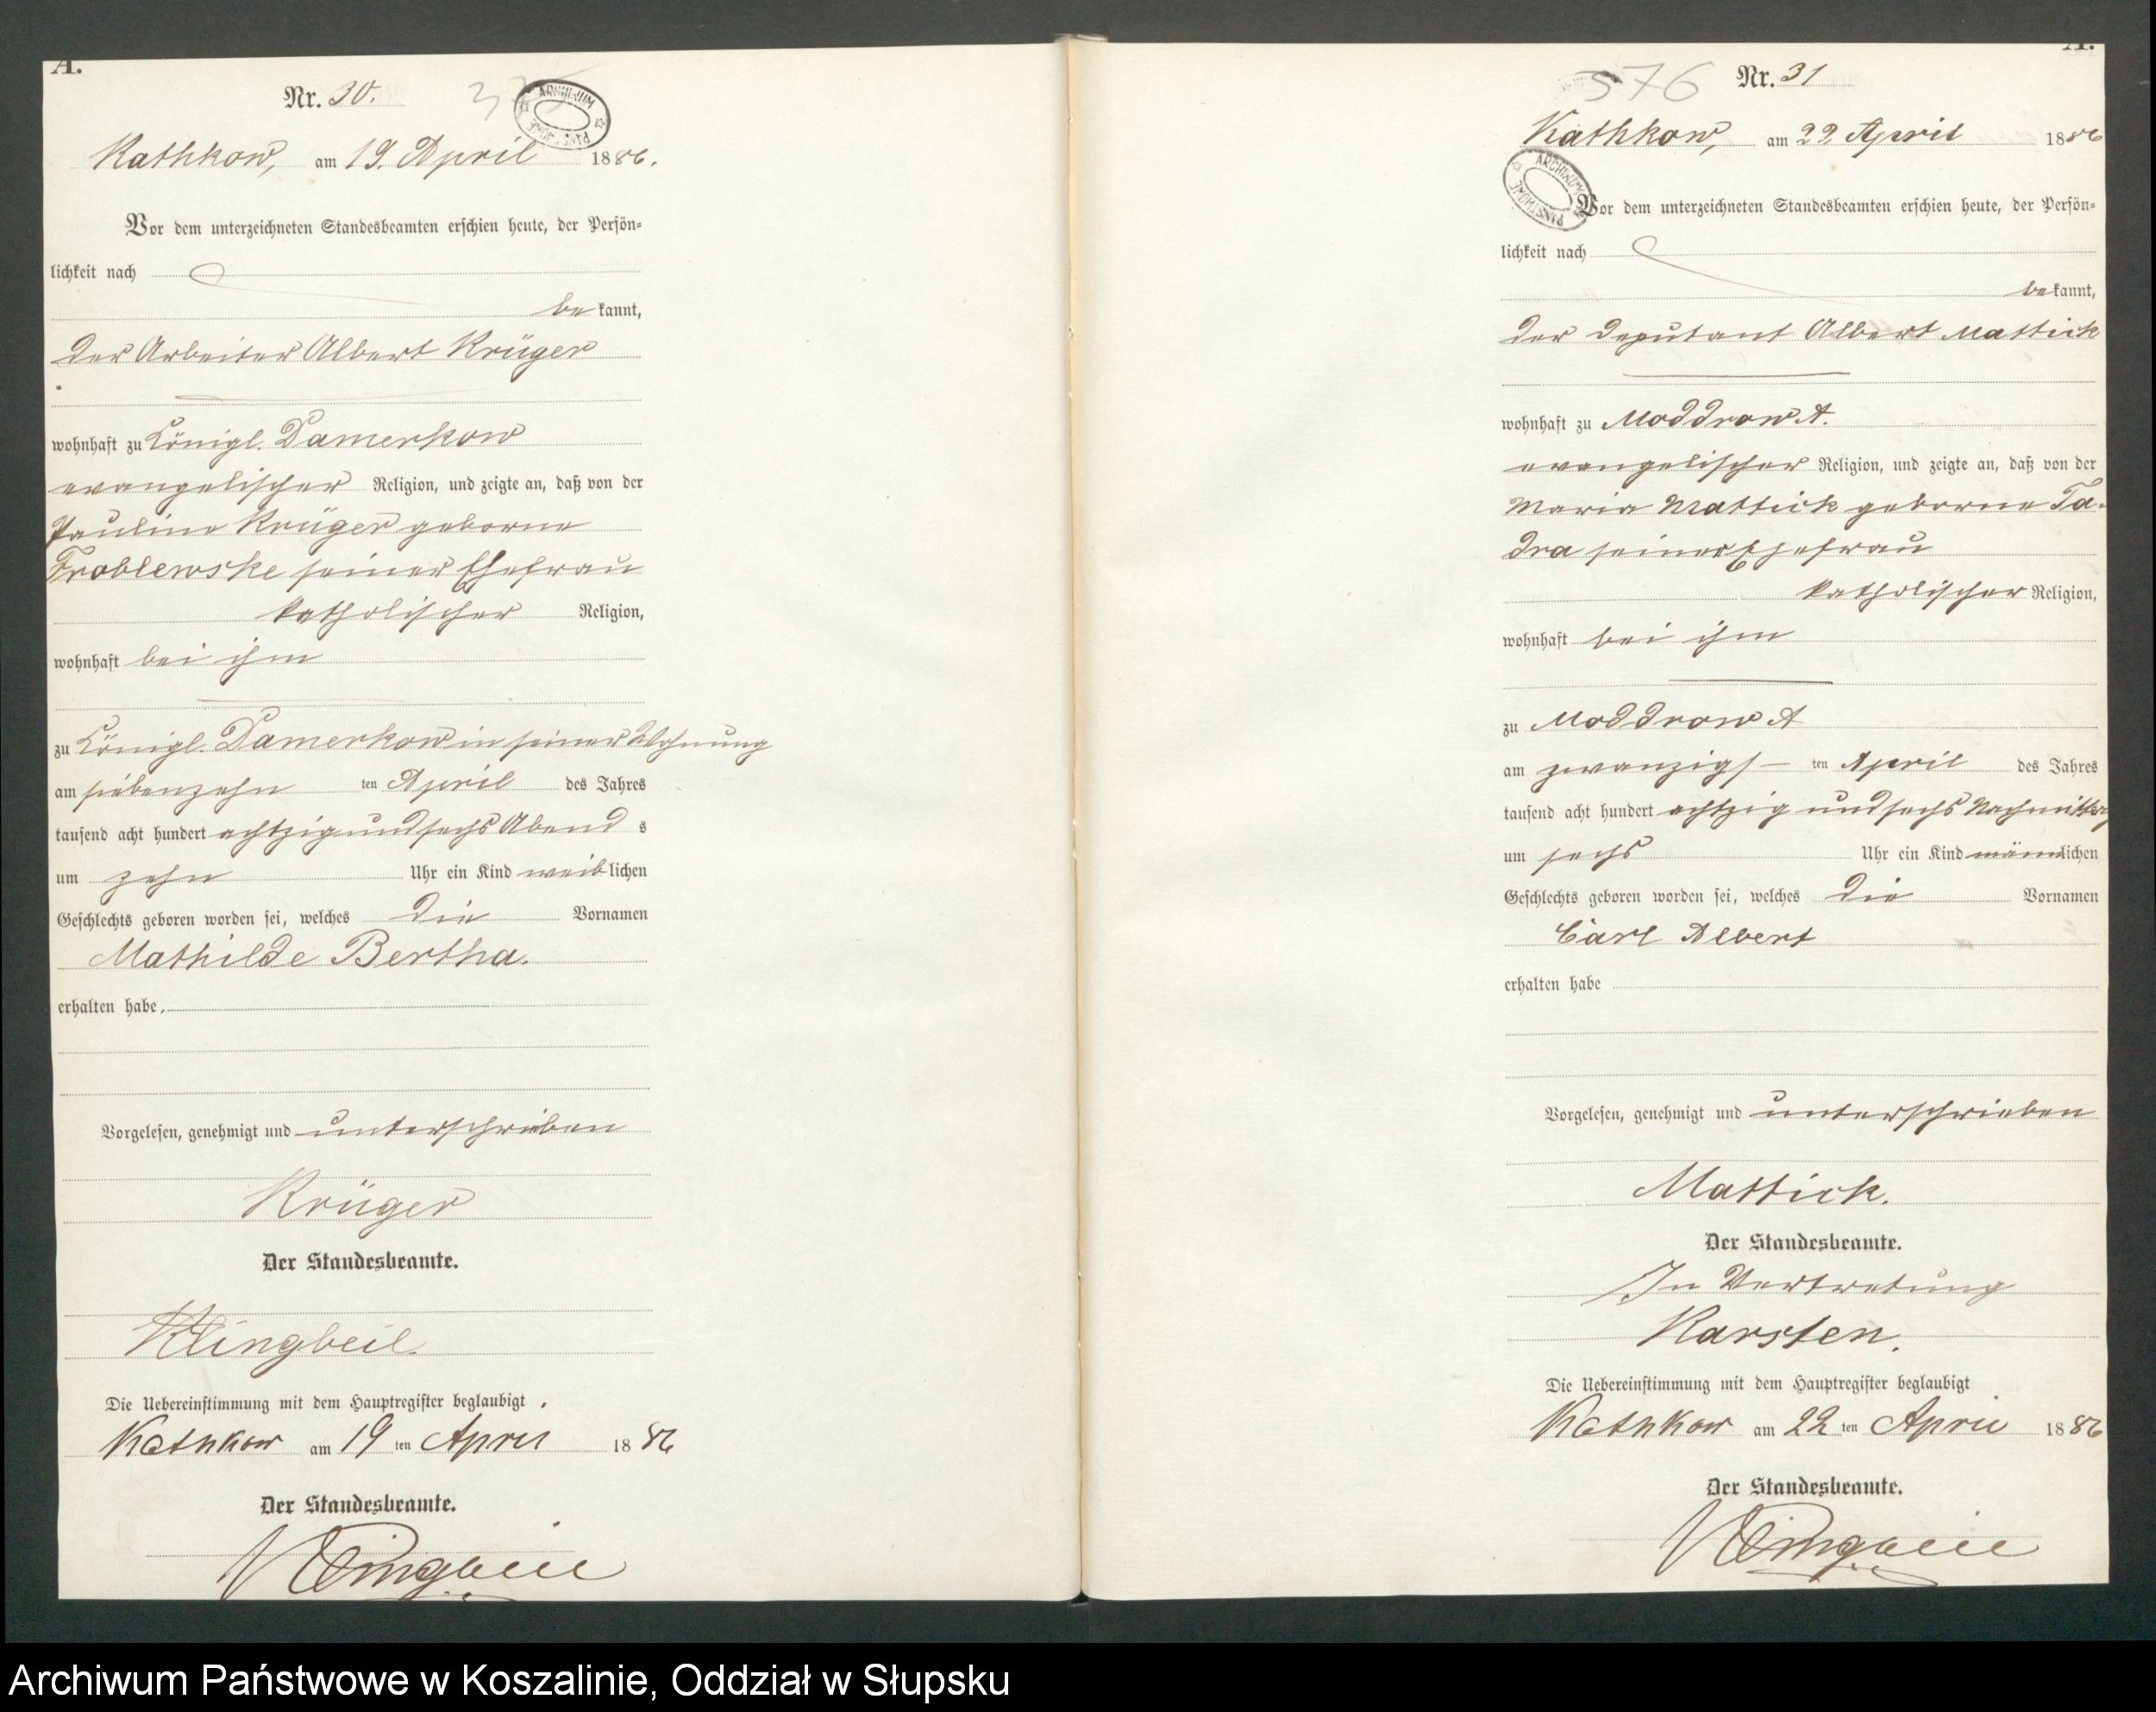 A.
Nr. 30.
ARCHIWUM
Kathkow, am 19. April 1886.
Vor dem unterzeichneten Standesbeamten erschien heute, der Persön=
lichkeit nach
bekannt,
der Arbeiter Albert Krüger
wohnhaft zu Königl. Damerkow
evangelischer Religion, und zeigte an, daß von der
Pauline Krüger geborne
Froblewske seiner Ehefrau
katholischer Religion,
wohnhaft bei ihm
zu Königl. Damerkow in seiner Wohnung
am siebenzehn ten April des Jahres
tausend acht hundert achtzig und sechs Abend s
um zehn Uhr ein Kind weiblichen
Geschlechts geboren worden sei, welches die Vornamen
Mathilde Bertha.
erhalten habe.
Vorgelesen, genehmigt und unterschrieben
Krüger
Der Standesbeamte.
Klingbeil.
Die Uebereinstimmung mit dem Hauptregister beglaubigt.
Kathkow am 19 ten April 1886
Der Standesbeamte.
Klingbeil
A.
576 Nr. 31
Kathkow, am 22 April 1886
ARCHIWUM PAŃSTWOWE
Vor dem unterzeichneten Standesbeamten erschien heute, der Persön=
lichkeit nach
bekannt,
der Deputant Albert Mattick
wohnhaft zu Moddrow A.
evangelischer Religion, und zeigte an, daß von der
Maria Mattick geborne Ta-
dra seiner Ehefrau
katholischer Religion,
wohnhaft bei ihm
zu Moddrow A
am zwanzigs ten April des Jahres
tausend acht hundert achtzig und sechs Nachmittag
um sechs Uhr ein Kind männlichen
Geschlechts geboren worden sei, welches die Vornamen
Carl Albert
erhalten habe
Vorgelesen, genehmigt und unterschrieben
Mattick.
Der Standesbeamte.
In Vertretung
Karsten.
Die Uebereinstimmung mit dem Hauptregister beglaubigt
Kathkow am 22 ten April 1886
Der Standesbeamte.
Klingbeil
Archiwum Państwowe w Koszalinie, Oddział w Słupsku